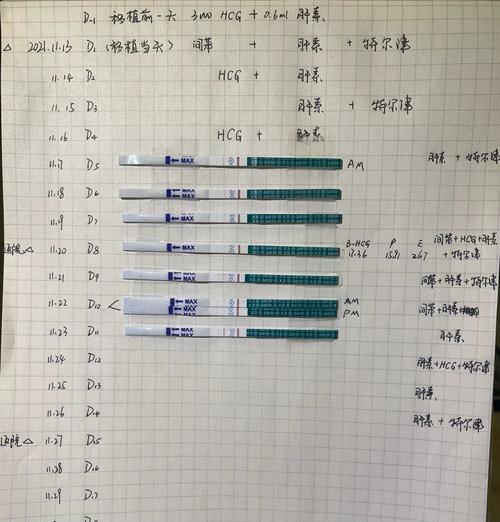 D-1 移植前一天 3000 HCG + 0.6ml 肝素
△ 2021.11.13 D1 (移植当天) 间苯 + 肝素 + 特尔津
11.14 D2 HCG + 肝素
11.15 D3 肝素 + 特尔津
11.16 D4 HCG + 肝素
11.17 D5 ← MAX AM 肝素 + 特尔津
11.18 D6 ← MAX
11.19 D7 ← MAX
△ 11.20 D8 ← MAX B-HCG 17.36 P E 267 间苯+HCG+肝素+特尔津
11.21 D9 ← MAX 间苯+肝素+特尔津
11.22 D10 < ← MAX AM 间苯+肝素
← MAX PM
11.23 D11 ← MAX 肝素
11.24 D12 肝素+HCG+特尔津
11.25 D13 肝素
11.26 D14 肝素 + 特尔津
医院 △ 11.27 D15
11.28 D16
11.29 D17